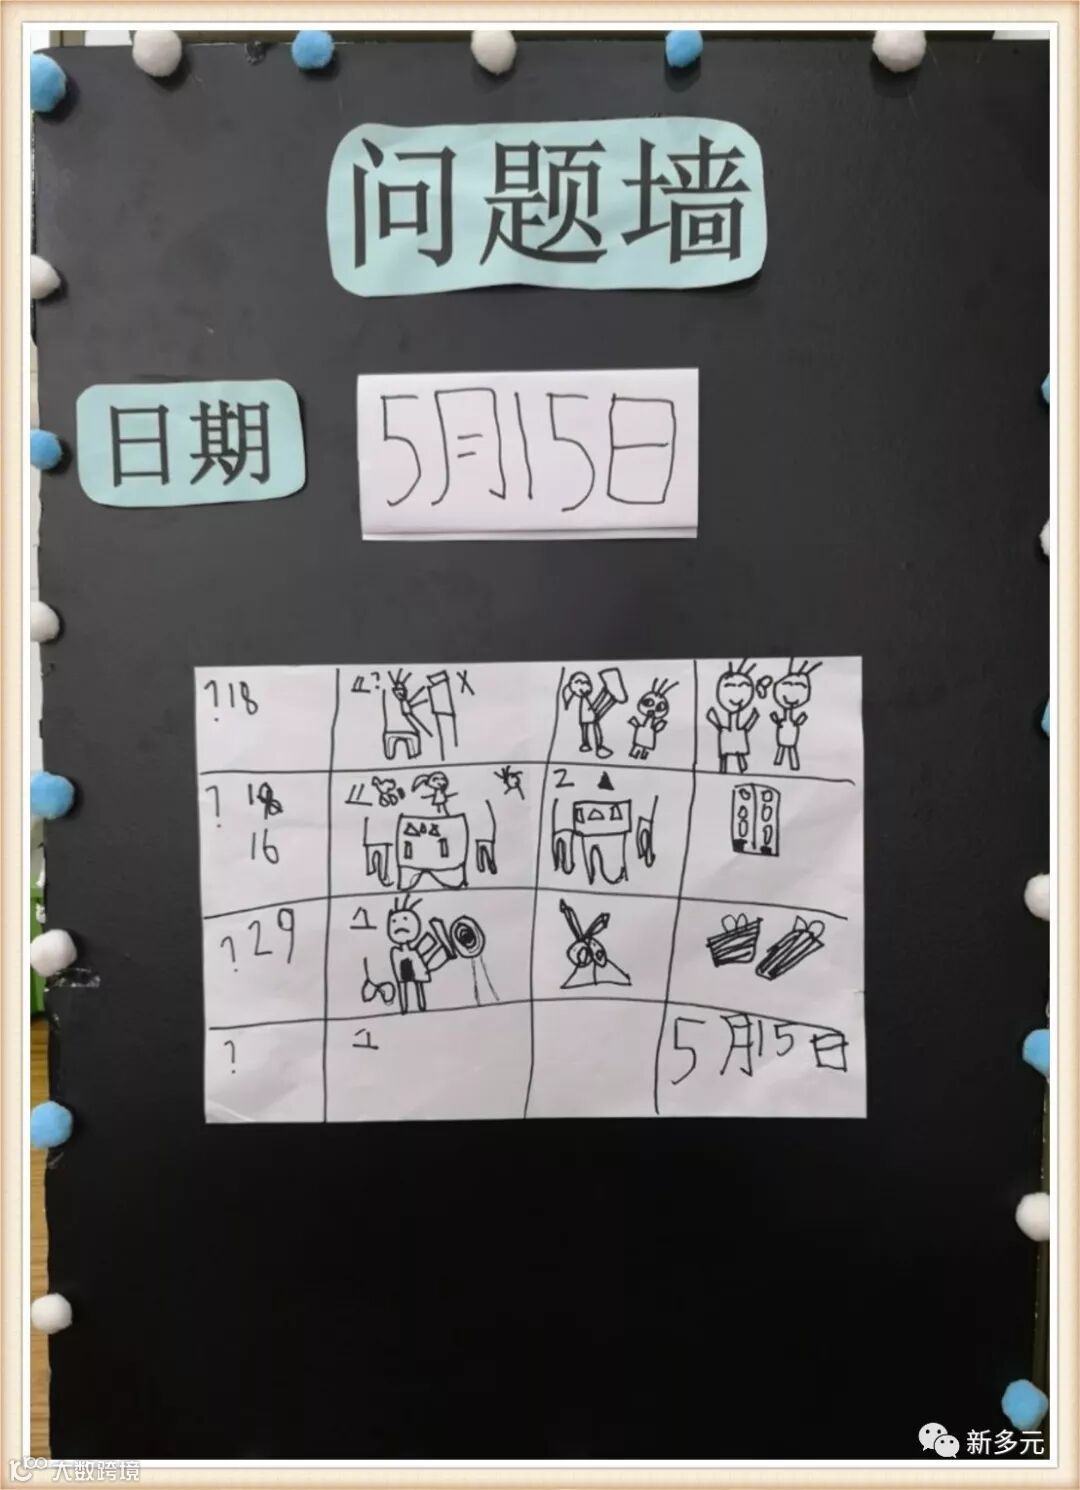 问题墙
日期
5月15日
?18
?
16
2
?29
1
?
1
5月15日
新多元
大数跨境